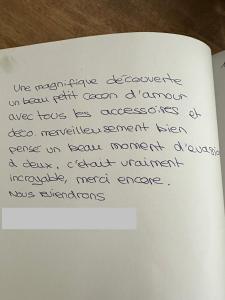 Une magnifique découverte
un beau petit cocon d'amour
avec tous les accessoires et
déco. merveilleusement bien
pensé un beau moment d'évasion
à deux, c'était vraiment
incroyable, merci encore.
Nous reviendrons